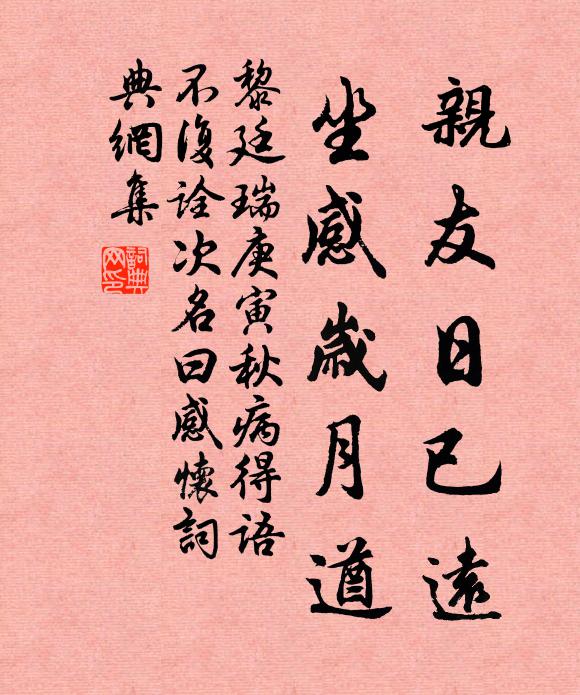 親友日已遠
坐感歲月遒
黎廷瑞庚寅秋病得語
不復詮次名曰感懷詞
典網集
詞典
网印